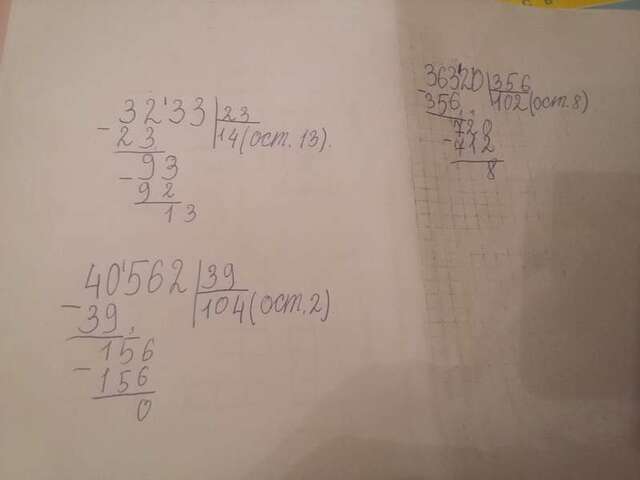 32'33 | 23
- 23 | 14 (ост. 13).
93
- 92
13
40'562 | 39
- 39 | 104 (ост. 2).
156
- 156
0
363'20 | 356
- 356 | 102 (ост. 8)
720
- 712
8